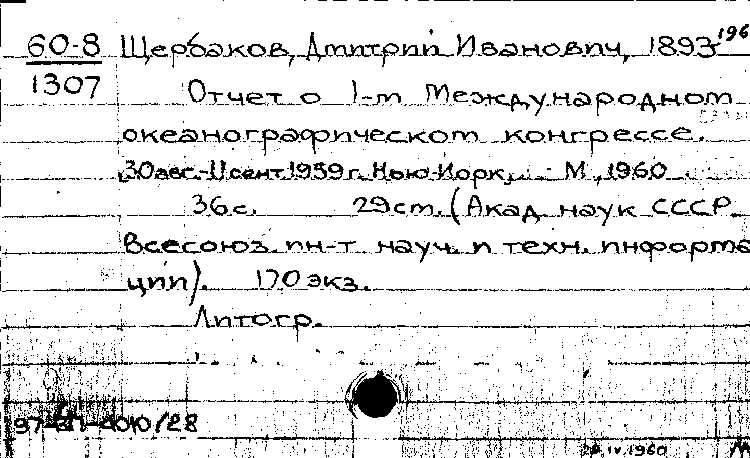 60-8 Щербаков, Дмитрий Иванович, 1893-196
1307 Отчет о 1-м Международном
океанографическом конгрессе.
30 авг.-11 сент. 1959 г. Нью-Йорк, М., 1960
36 с. 29 см. (Акад. наук СССР.
Всесоюз. ин-т науч. и техн. информа
ции). 170 экз.
Литогр.
20.IV.1960